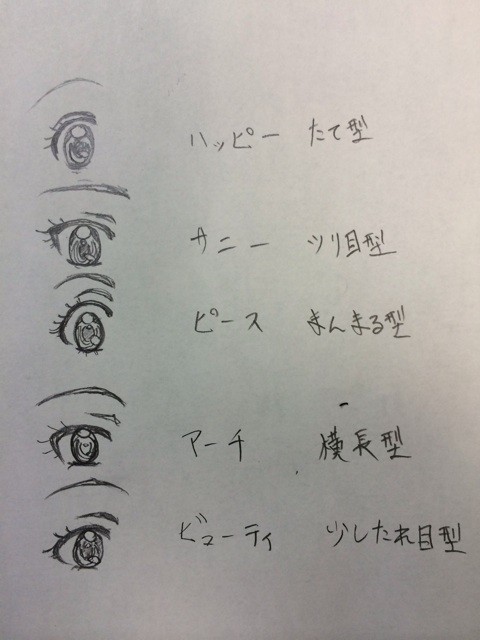 ハッピー たて型
サニー ツリ目型
ピース まんまる型
アーチ 横長型
ビューティ 少したれ目型